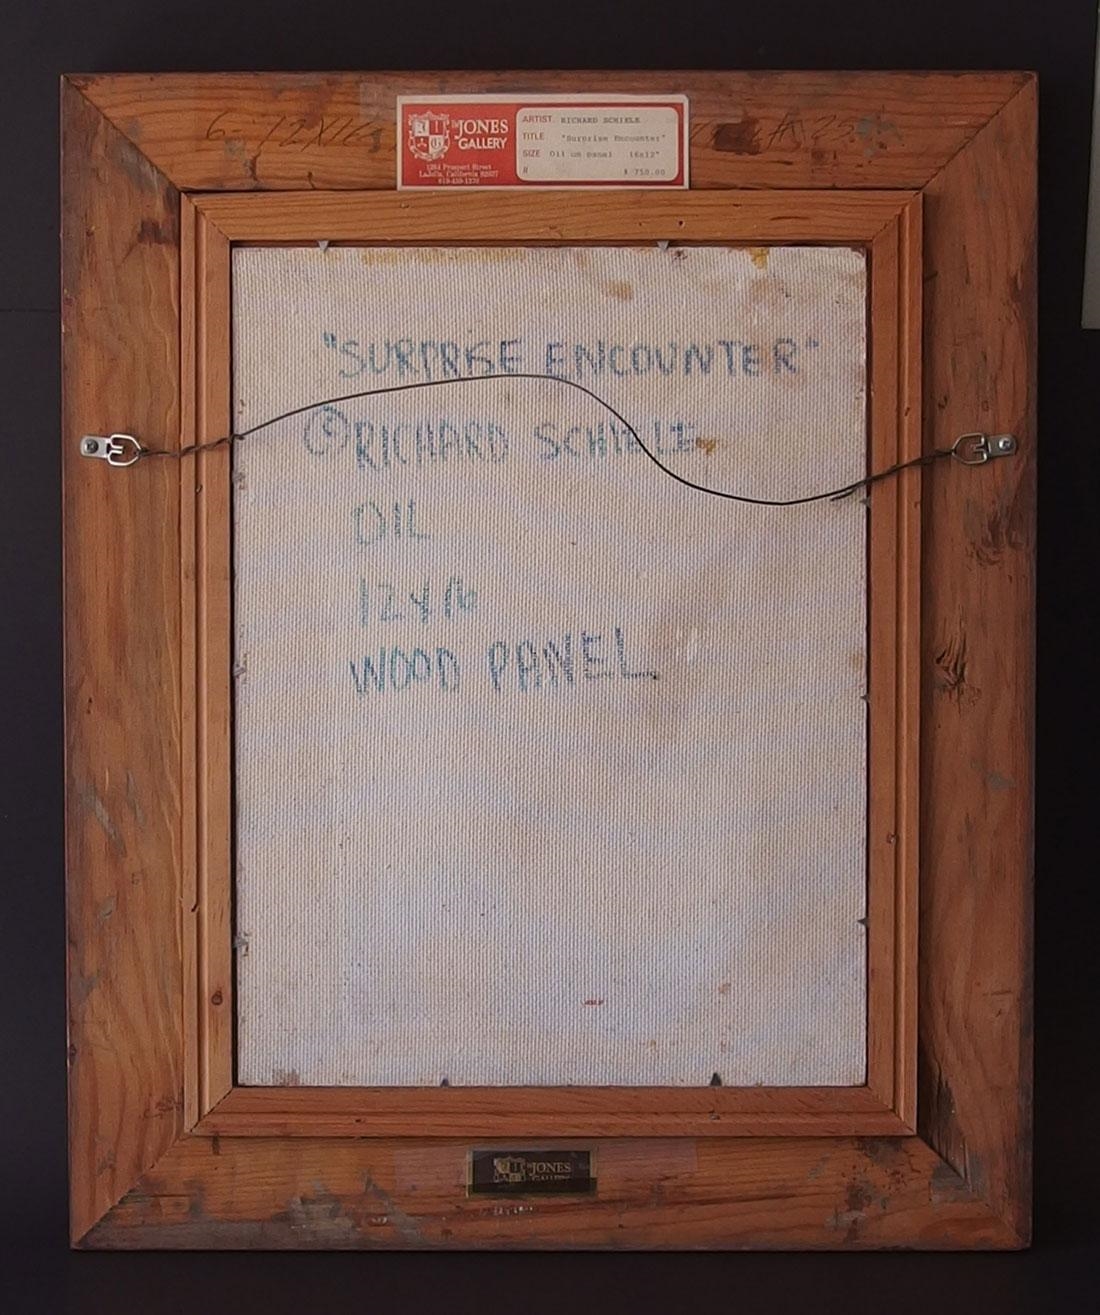 THE JONES
GALLERY
1264 Prospect Street
LaJolla, California 92037
619-459-1370
ARTIST RICHARD SCHIELE
TITLE "Surprise Encounter"
SIZE Oil on panel 16x12"
# $ 750.00
"SURPRISE ENCOUNTER"
© RICHARD SCHIELE
OIL
12x16
WOOD PANEL
THE JONES
GALLERY